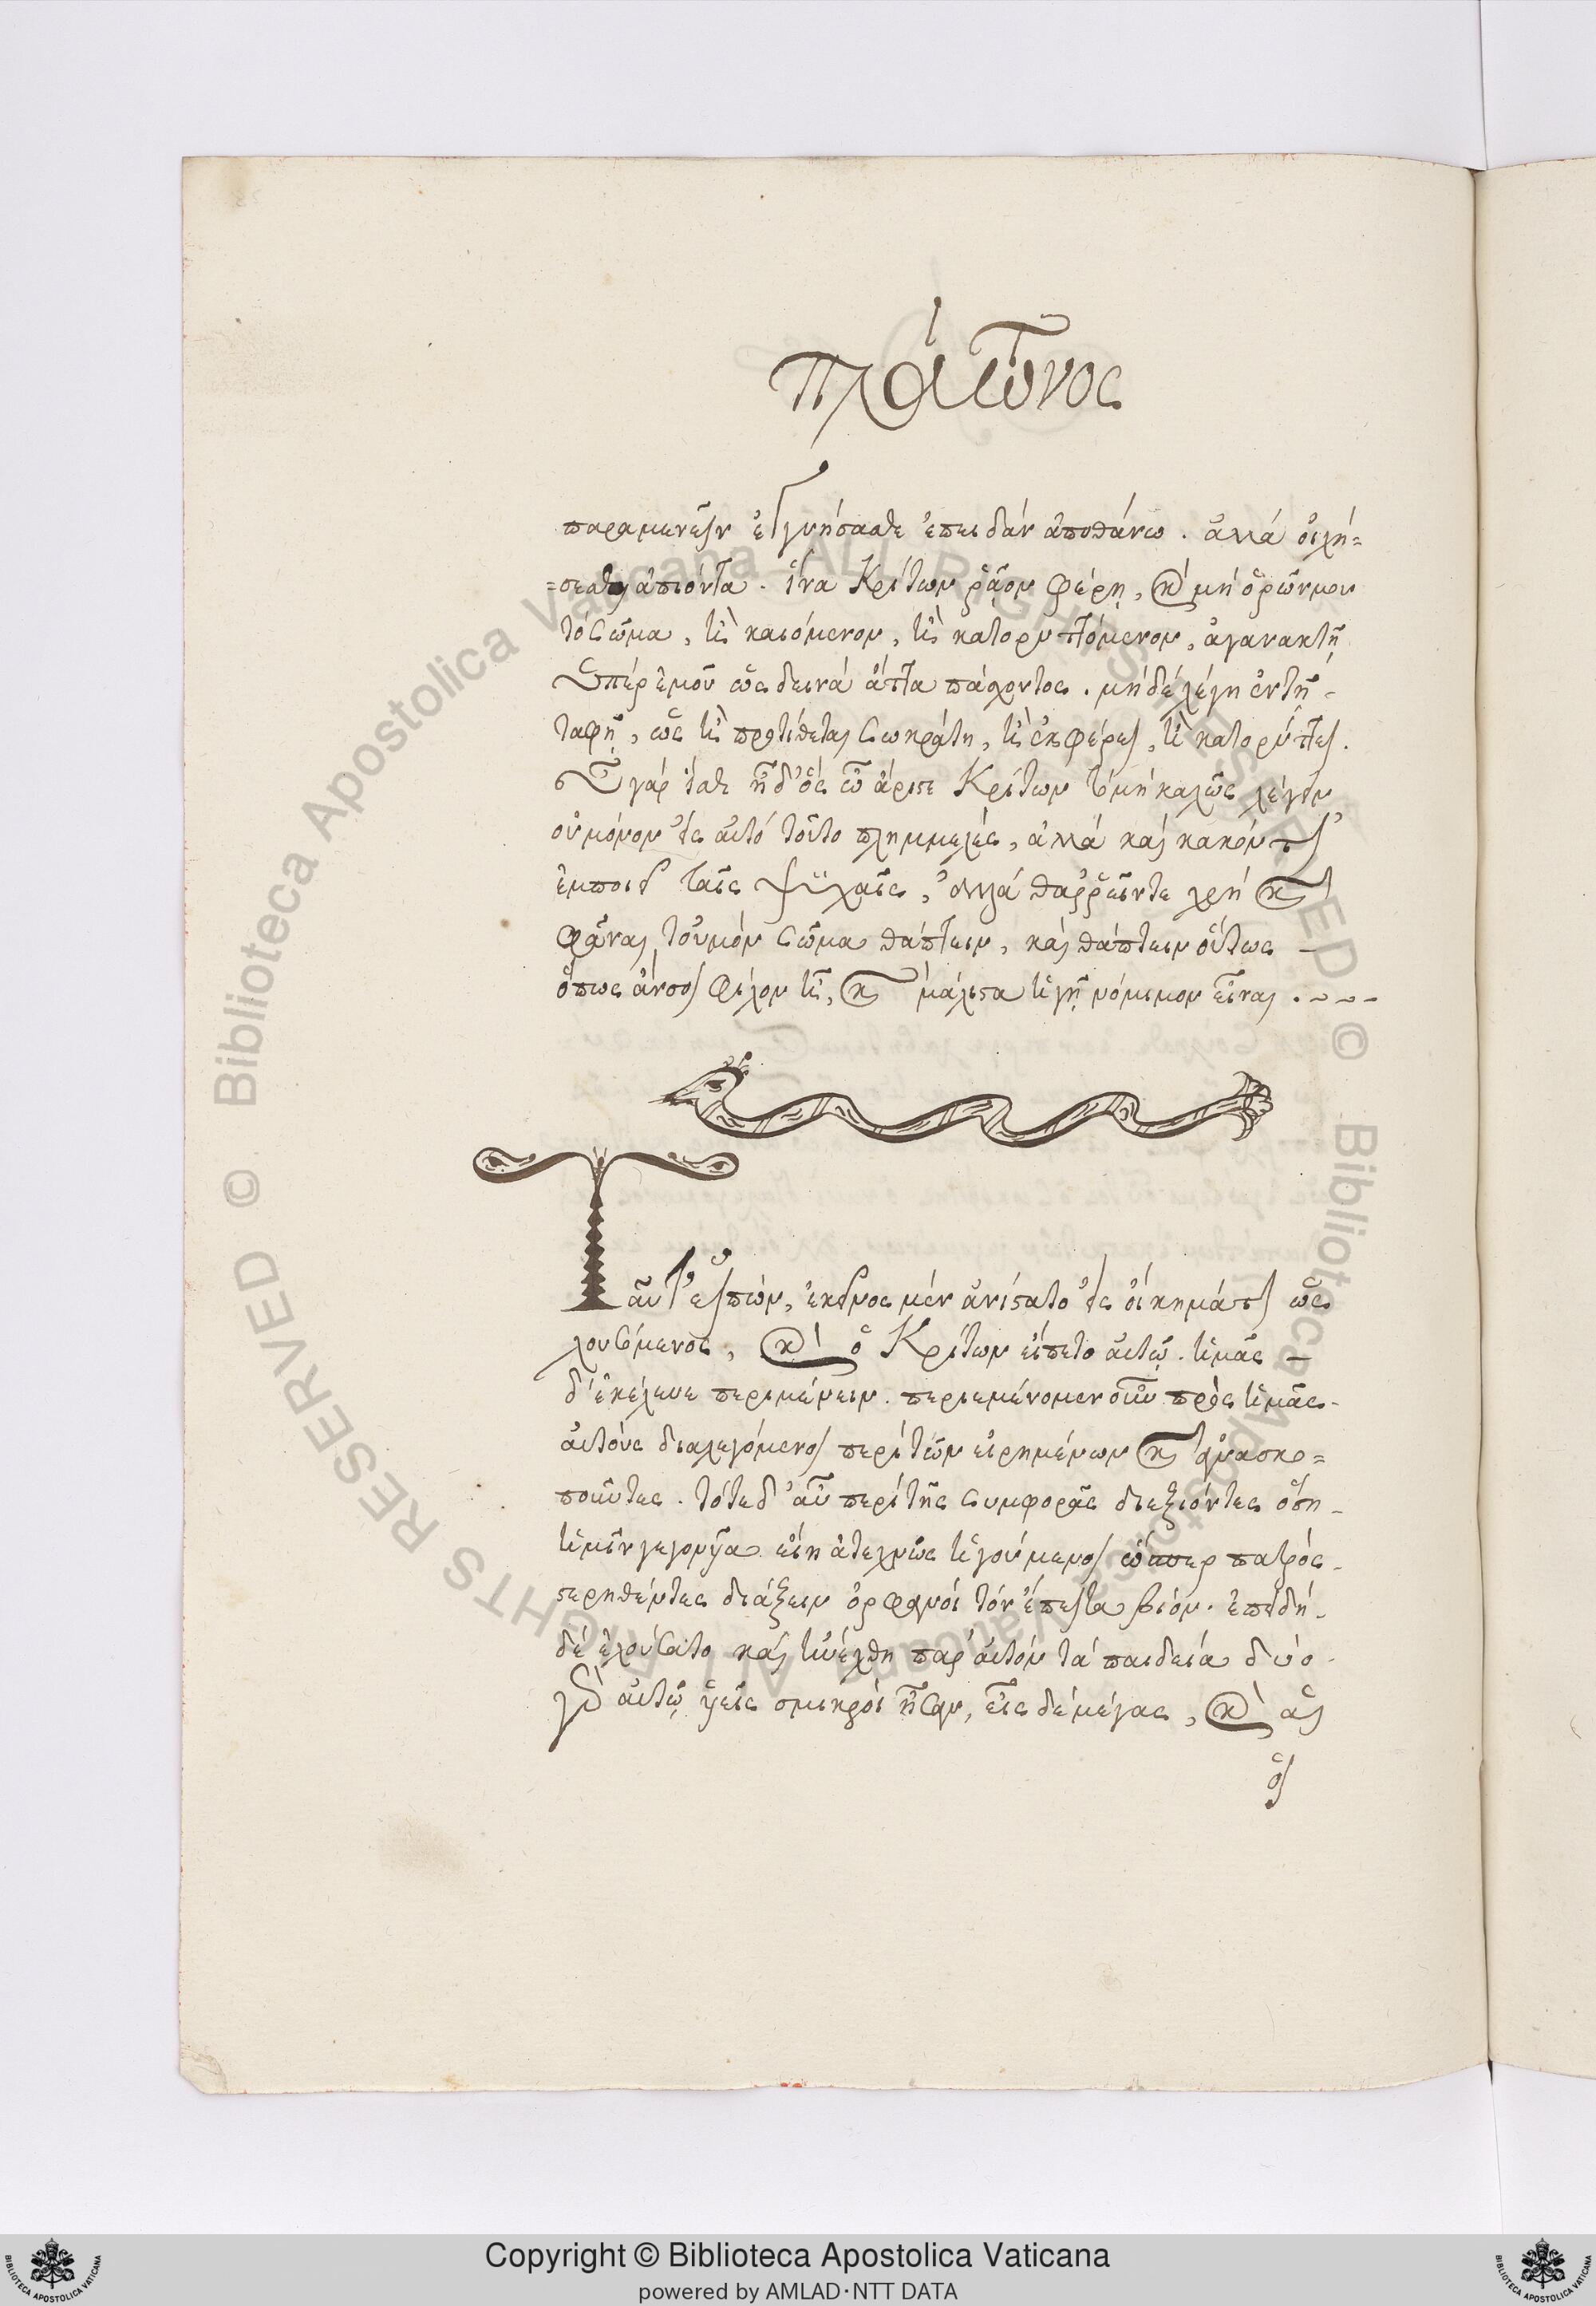 Πλάτωνος
παραμενεῖν ἐγγυήσασθε ἐπειδάν ἀποθάνω. ἀλλά οἰχή=
=σεσθαι ἀπιόντα. ἵνα Κρίτων ῥᾷον φέρῃ, καί μή ὁρῶν μου
τό σῶμα, ἢ καιόμενον, ἢ κατορυττόμενον, ἀγανακτῇ
ὑπέρ ἐμοῦ ὡς δεινά ἄττα πάσχοντος. μηδέ λέγῃ ἐν τῇ
ταφῇ, ὡς ἢ προτίθεται Σωκράτη, ἢ ἐκφέρει, ἢ κατορύττει.
εὖ γάρ ἴσθι ἦ δ' ὅς ὦ ἄριστε Κρίτων τό μή καλῶς λέγειν
οὐ μόνον εἰς αὐτό τοῦτο πλημμελές, ἀλλά καί κακόν τι
ἐμποιεῖ ταῖς ψυχαῖς, ἀλλά θαῤῥεῖν τε χρή καί
φάναι τοὐμόν σῶμα θάπτειν, καί θάπτειν οὕτως
ὅπως ἄν σοι φίλον ᾖ, καί μάλιστα ἡγῇ νόμιμον εἶναι.
Ταῦτ' εἰπών, ἐκεῖνος μέν ἀνίστατο εἰς οἴκημά τι ὡς
λουσόμενος, καί ὁ Κρίτων εἵπετο αὐτῷ. ἡμᾶς
δ' ἐκέλευε περιμένειν. περιεμένομεν οὖν πρός ἡμᾶς
αὐτούς διαλεγόμενοι περί τῶν εἰρημένων καί ἀνασκο=
ποῦντες. τότε δ' αὖ περί τῆς συμφορᾶς διεξιόντες ὅση
ἡμῖν γεγονυῖα εἴη ἀτεχνῶς ἡγούμενοι ὥσπερ πατρός
στερηθέντες διάξειν ὀρφανοί τόν ἔπειτα βίον. ἐπειδή
δέ ἐλούσατο καί ἠνέχθη παρ' αὐτόν τά παιδεία δύο
γάρ αὐτῷ υἱεῖς σμικροί ἦσαν, εἷς δέ μέγας, καί αἱ
οἱ
Copyright © Biblioteca Apostolica Vaticana
powered by AMLAD·NTT DATA